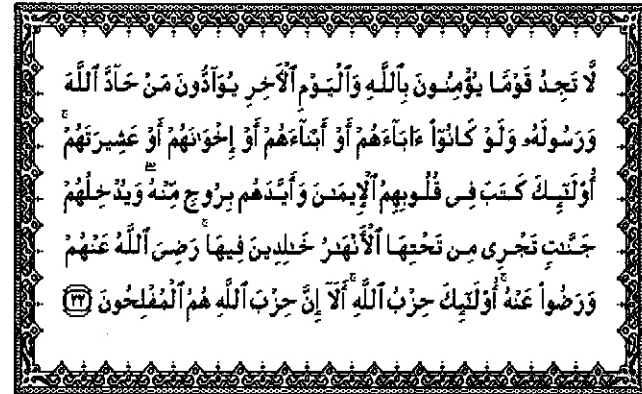 لَّا تَجِدُ قَوْمًا يُؤْمِنُونَ بِٱللَّهِ وَٱلْيَوْمِ ٱلْءَاخِرِ يُوَآدُّونَ مَنْ حَآدَّ ٱللَّهَ
وَرَسُولَهُۥ وَلَوْ كَانُوٓا۟ ءَابَآءَهُمْ أَوْ أَبْنَآءَهُمْ أَوْ إِخْوَٰنَهُمْ أَوْ عَشِيرَتَهُمْ ۚ
أُو۟لَٰٓئِكَ كَتَبَ فِى قُلُوبِهِمُ ٱلْإِيمَٰنَ وَأَيَّدَهُم بِرُوحٍ مِّنْهُ ۖ وَيُدْخِلُهُمْ
جَنَّٰتٍ تَجْرِى مِن تَحْتِهَا ٱلْأَنْهَٰرُ خَٰلِدِينَ فِيهَا ۚ رَضِىَ ٱللَّهُ عَنْهُمْ
وَرَضُوا۟ عَنْهُ ۚ أُو۟لَٰٓئِكَ حِزْبُ ٱللَّهِ ۚ أَلَآ إِنَّ حِزْبَ ٱللَّهِ هُمُ ٱلْمُفْلِحُونَ ٢٢